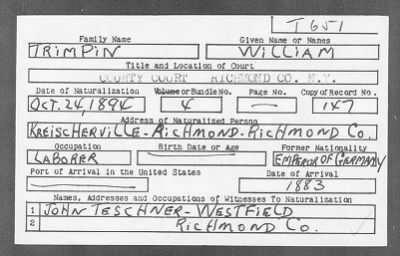 T651
Family Name Given Name or Names
TRIMPIN WILLIAM
Title and Location of Court
COUNTY COURT RICHMOND CO. N.Y.
Date of Naturalization Volume or Bundle No. Page No. Copy of Record No.
OCT. 24, 1894 4 — 147
Address of Naturalized Person
KREISCHERVILLE-RICHMOND-RICHMOND CO.
Occupation Birth Date or Age Former Nationality
LABORER — EMPEROR OF GERMANY
Port of Arrival in the United States Date of Arrival
— 1883
Names, Addresses and Occupations of Witnesses To Naturalization
1 JOHN TESCHNER-WESTFIELD
2 RICHMOND CO.